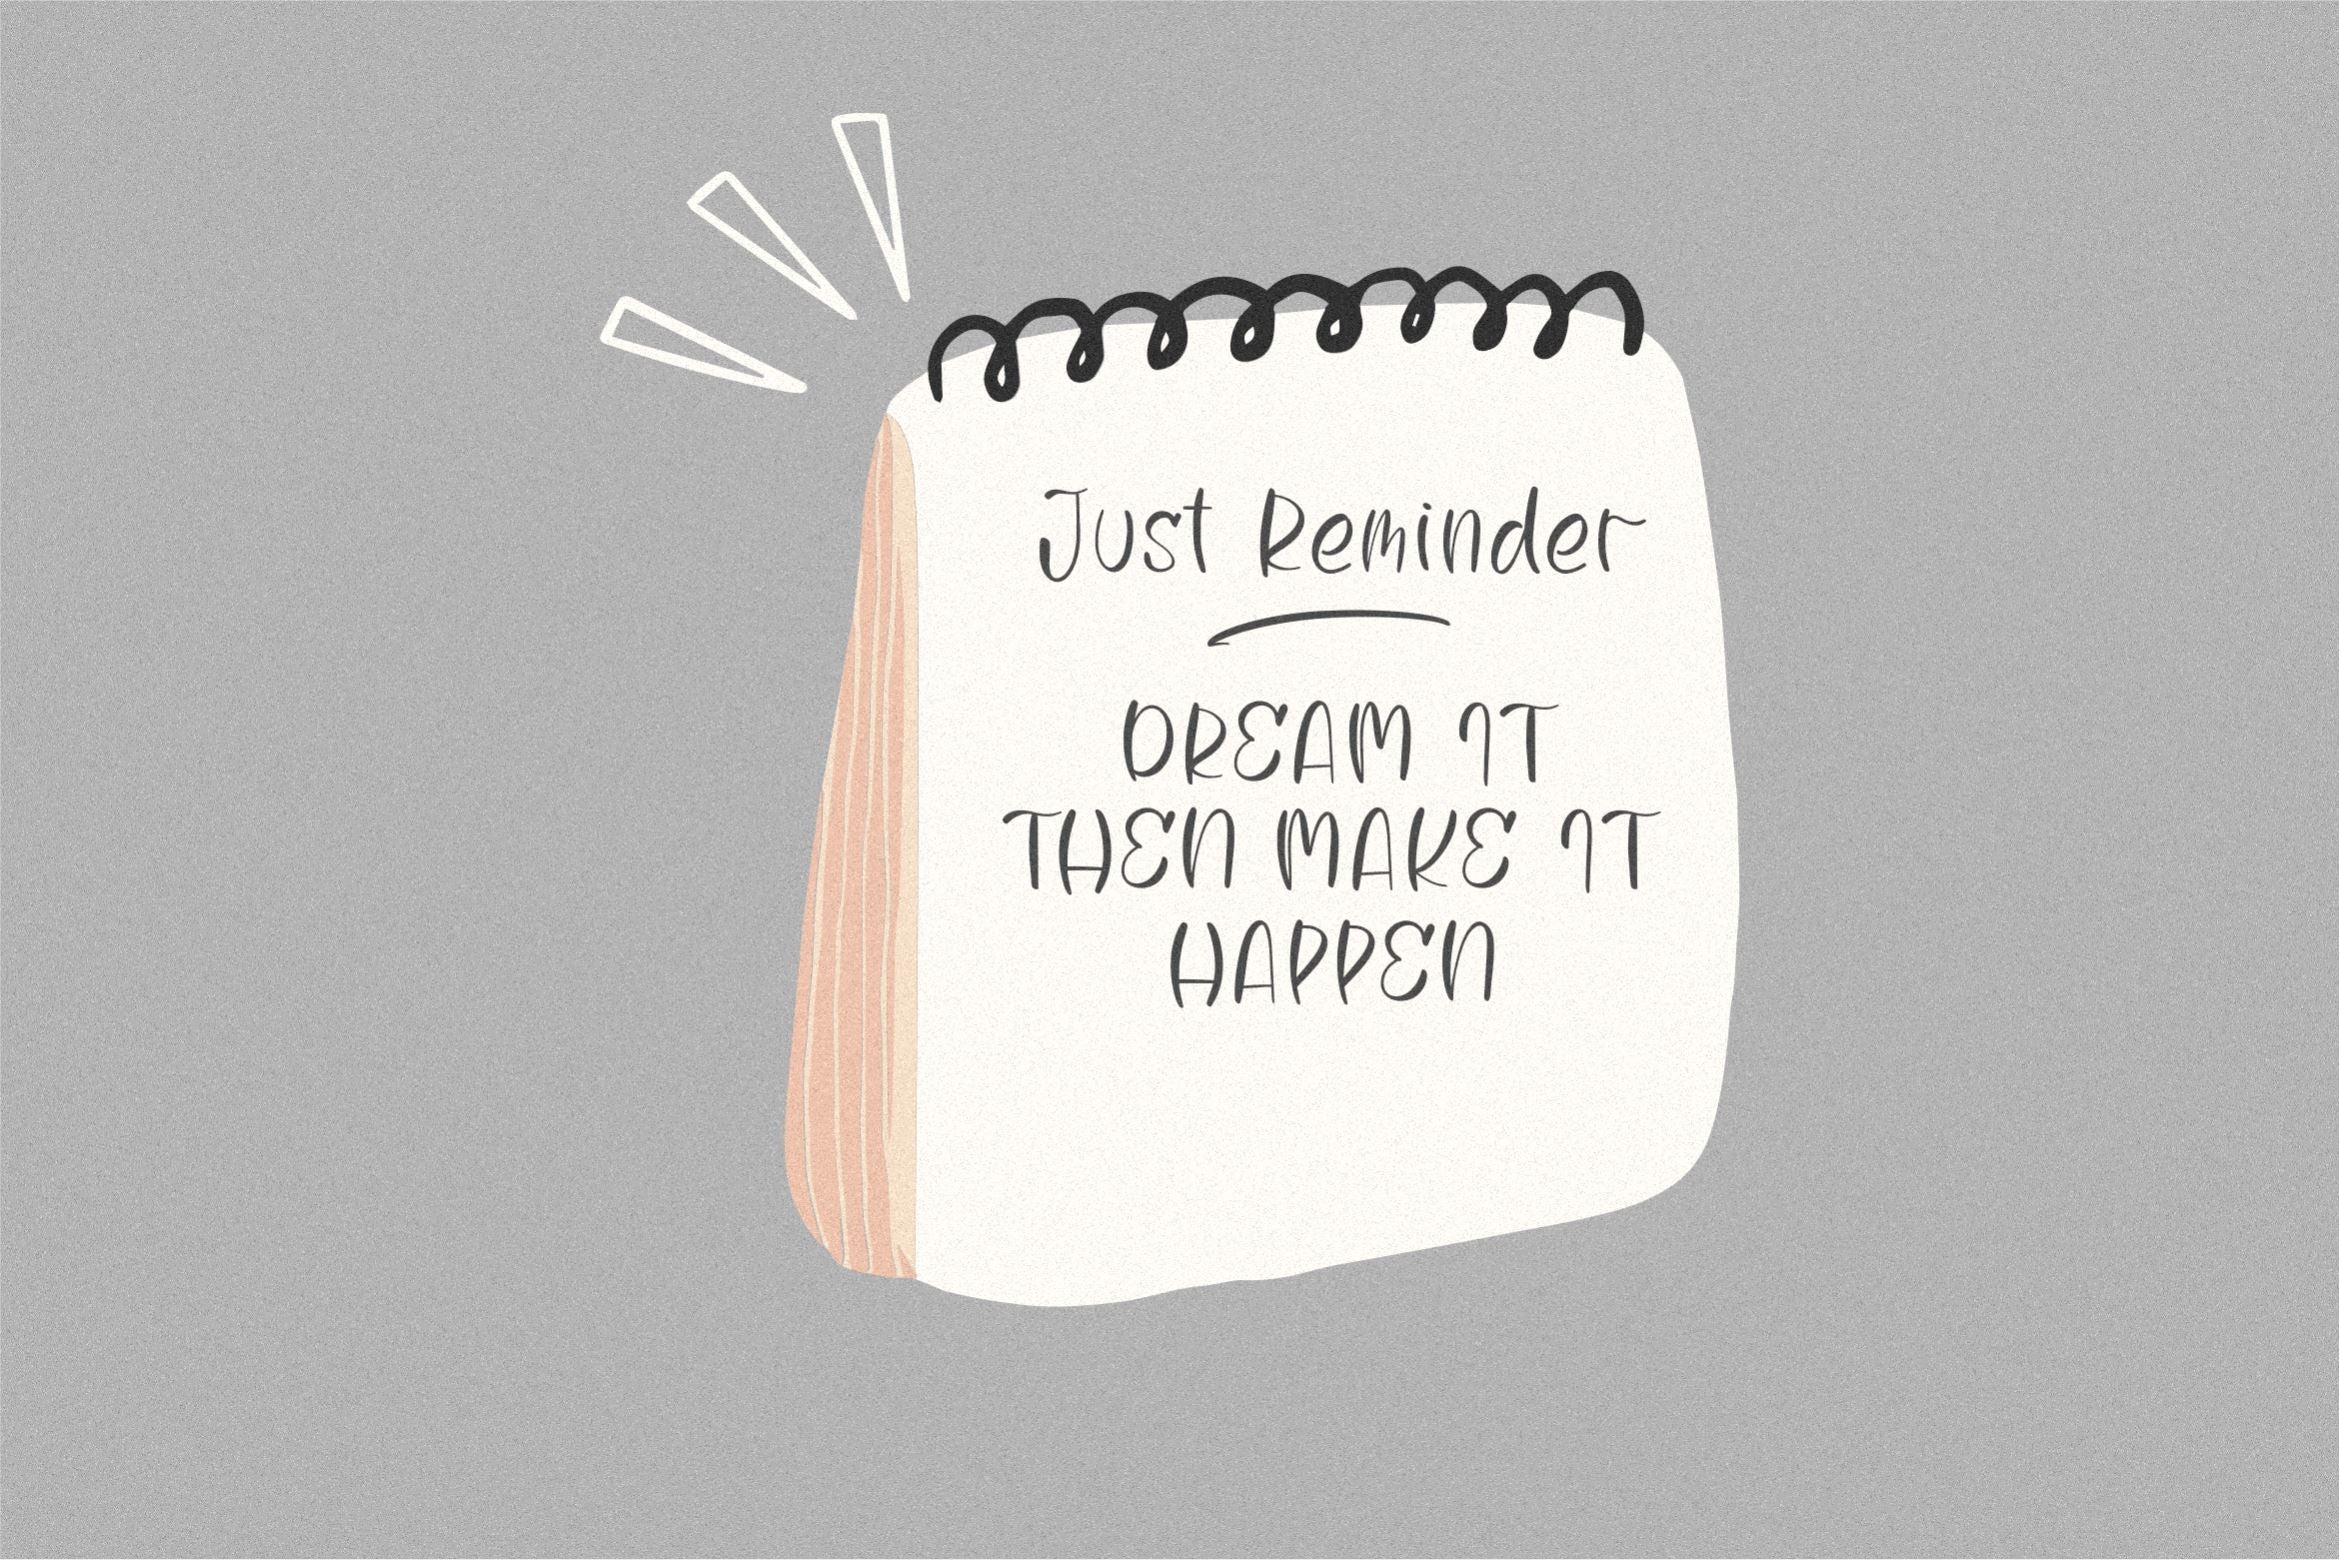 Just Reminder
DREAM IT
THEN MAKE IT
HAPPEN